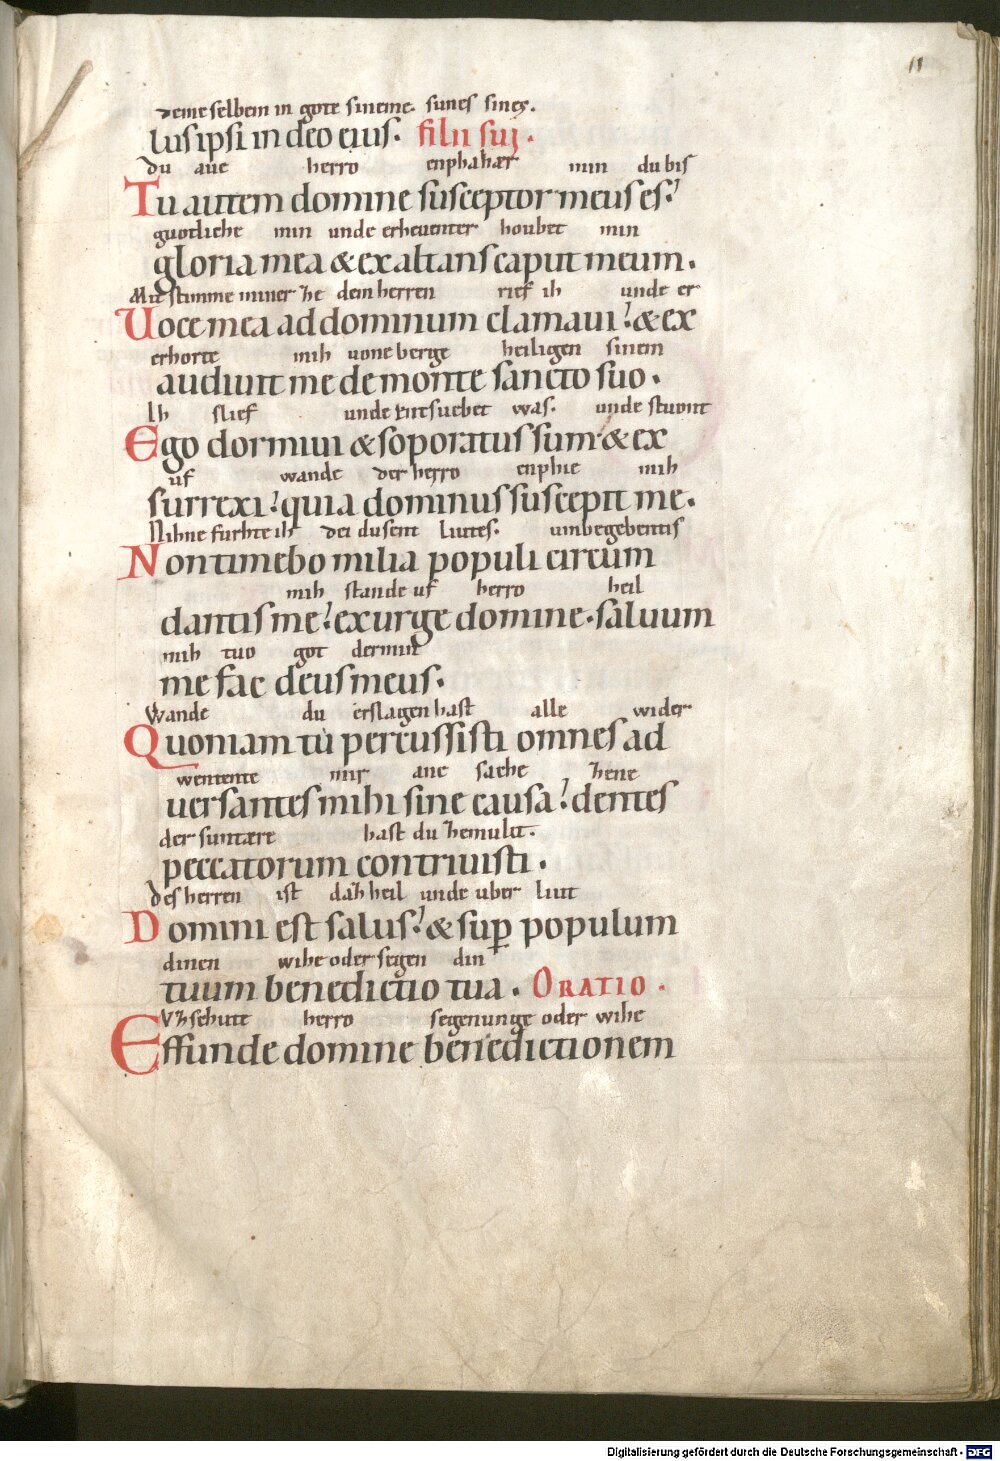 11
deme selbem in gote sineme. sunes sines.
lus ipsi in deo eius. filii sui.
du aue herro enphahær min du bis
Tu autem domine susceptor meus es?
guotliche min unde erheuenter houbet min
gloria mea & exaltans caput meum.
Mit stimme miner ze dem herren rief ih unde er
Uoce mea ad dominum clamaui? & ex
erhorte mih uone berge heiligen sinem
audiuit me de monte sancto suo.
Ih slief unde entsuebet was. unde stuont
Ego dormiui & soporatus sum. & ex
uf wande der herro enphie mih
surrexi? quia dominus suscepit me.
Nihne furhte ih dei dusent liutes. umbegebentis
Non timebo milia populi circum
mih stande uf herro heil
dantis me? exurge domine. saluum
mih tuo got der min
me fac deus meus.
Wande du erslagen hast alle wider
Quoniam tu percussisti omnes ad
wentente mir ane sache zene
uersantes mihi sine causa? dentes
der suntære hast du zemulet.
peccatorum contriuisti.
Des herren ist daz heil unde uber liut
Domini est salus? & sup populum
dinen wihe oder segen din
tuum benedictio tua. ORATIO.
Vzschute herro segenunge oder wihe
Effunde domine benedictionem
Digitalisierung gefördert durch die Deutsche Forschungsgemeinschaft - DFG